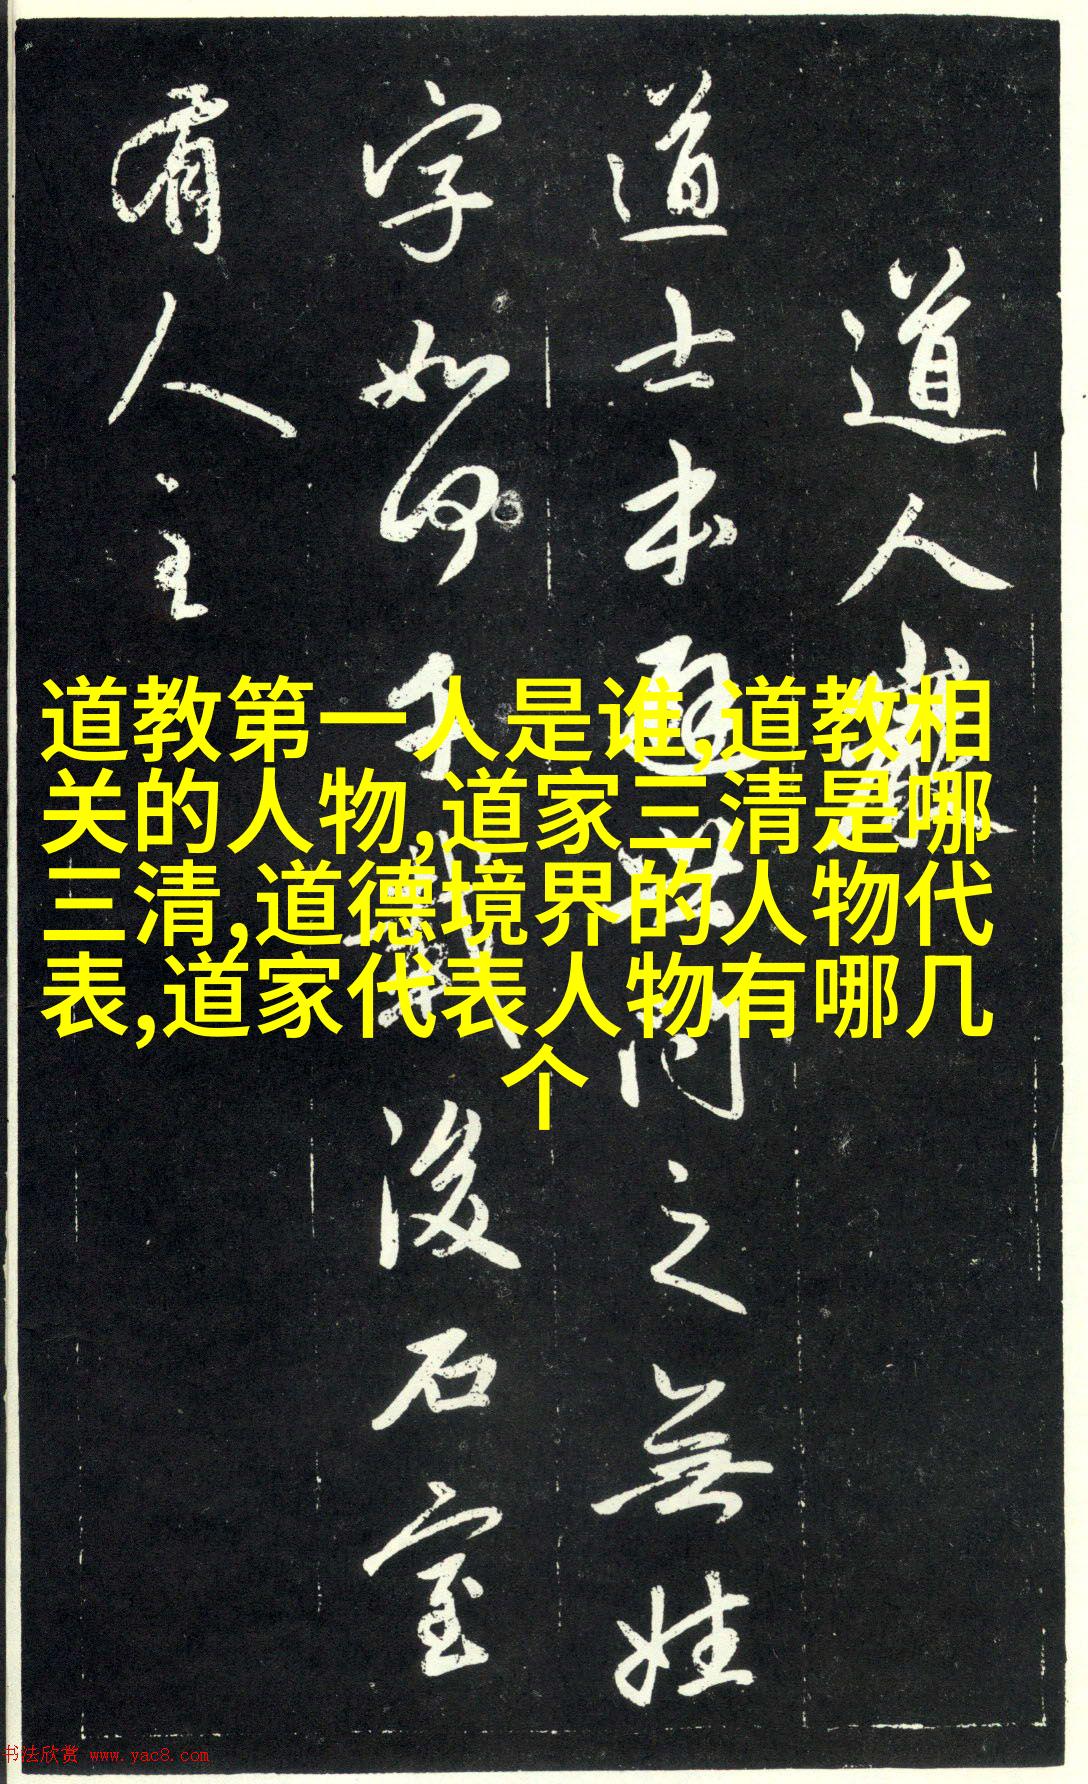 道人囊
道士本避世間之無姓
字如何千載後石室
有人主
道教第一人是谁,道教相
关的人物,道家三清是哪
三清,道德境界的人物代
表,道家代表人物有哪几
个
书法欣赏 www.yac8.com